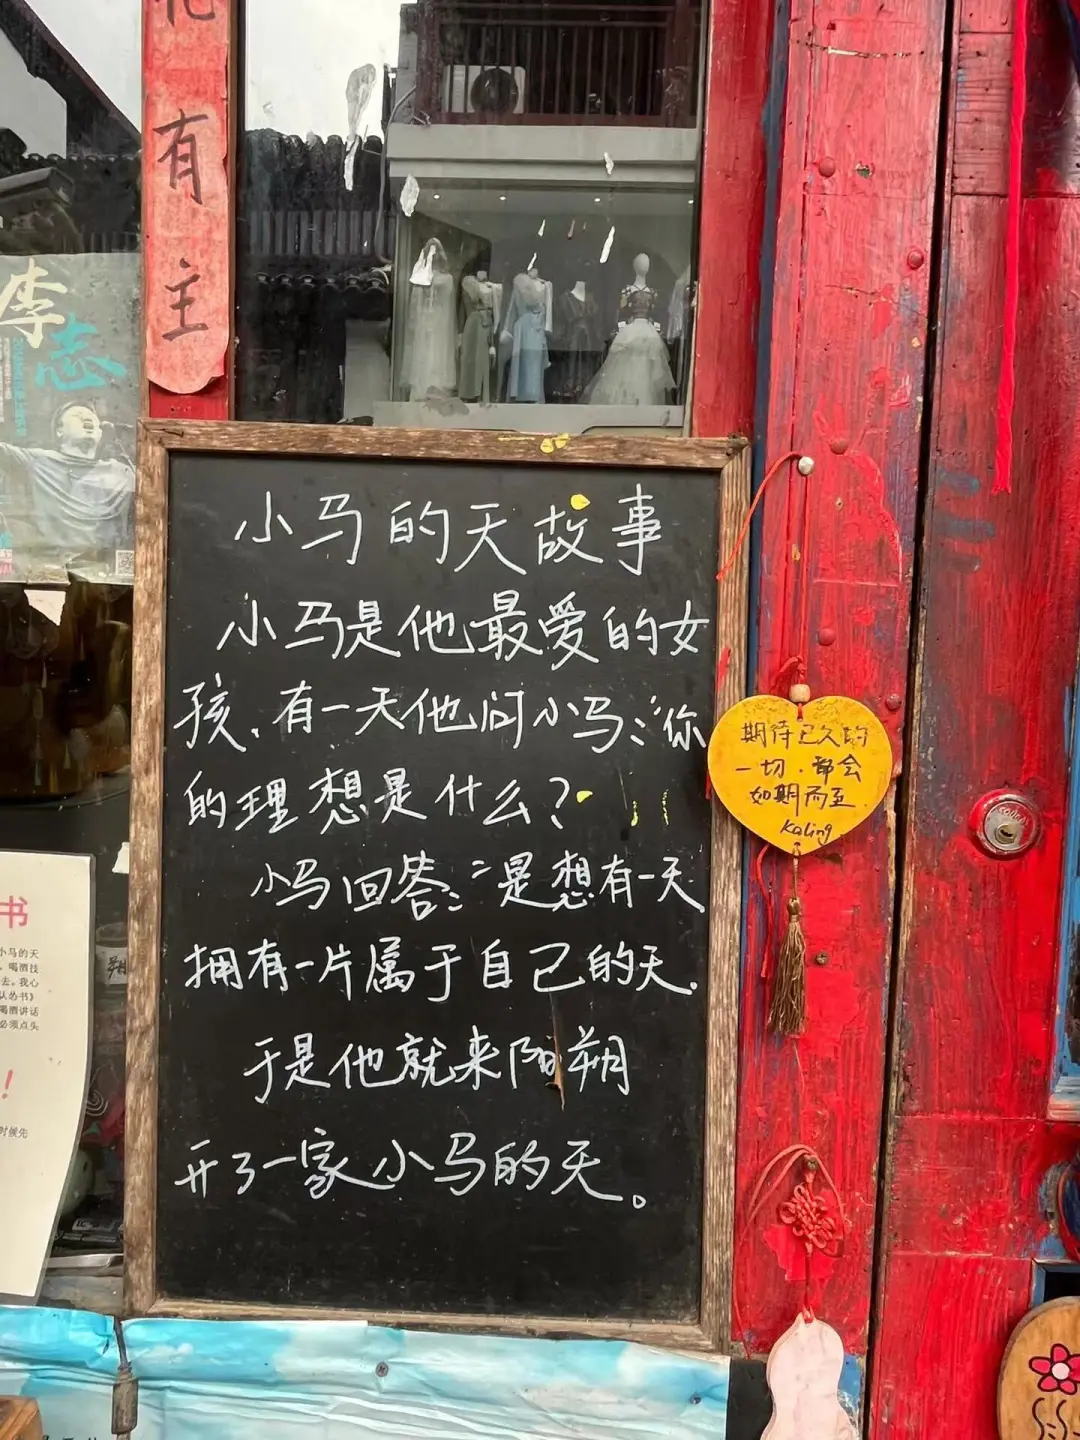 有
主
李
志
小马的天故事
小马是他最爱的女
孩.有一天他问小马:"你
的理想是什么?"
小马回答:"是想有一天
拥有一片属于自己的天.
于是他就来阳朔
开了一家小马的天。
期待已久的
一切.都会
如期而至.
Kaling
书
小马的天
喝酒技
去。我心
认怂书》
喝酒讲话
必须点头
!
时候先